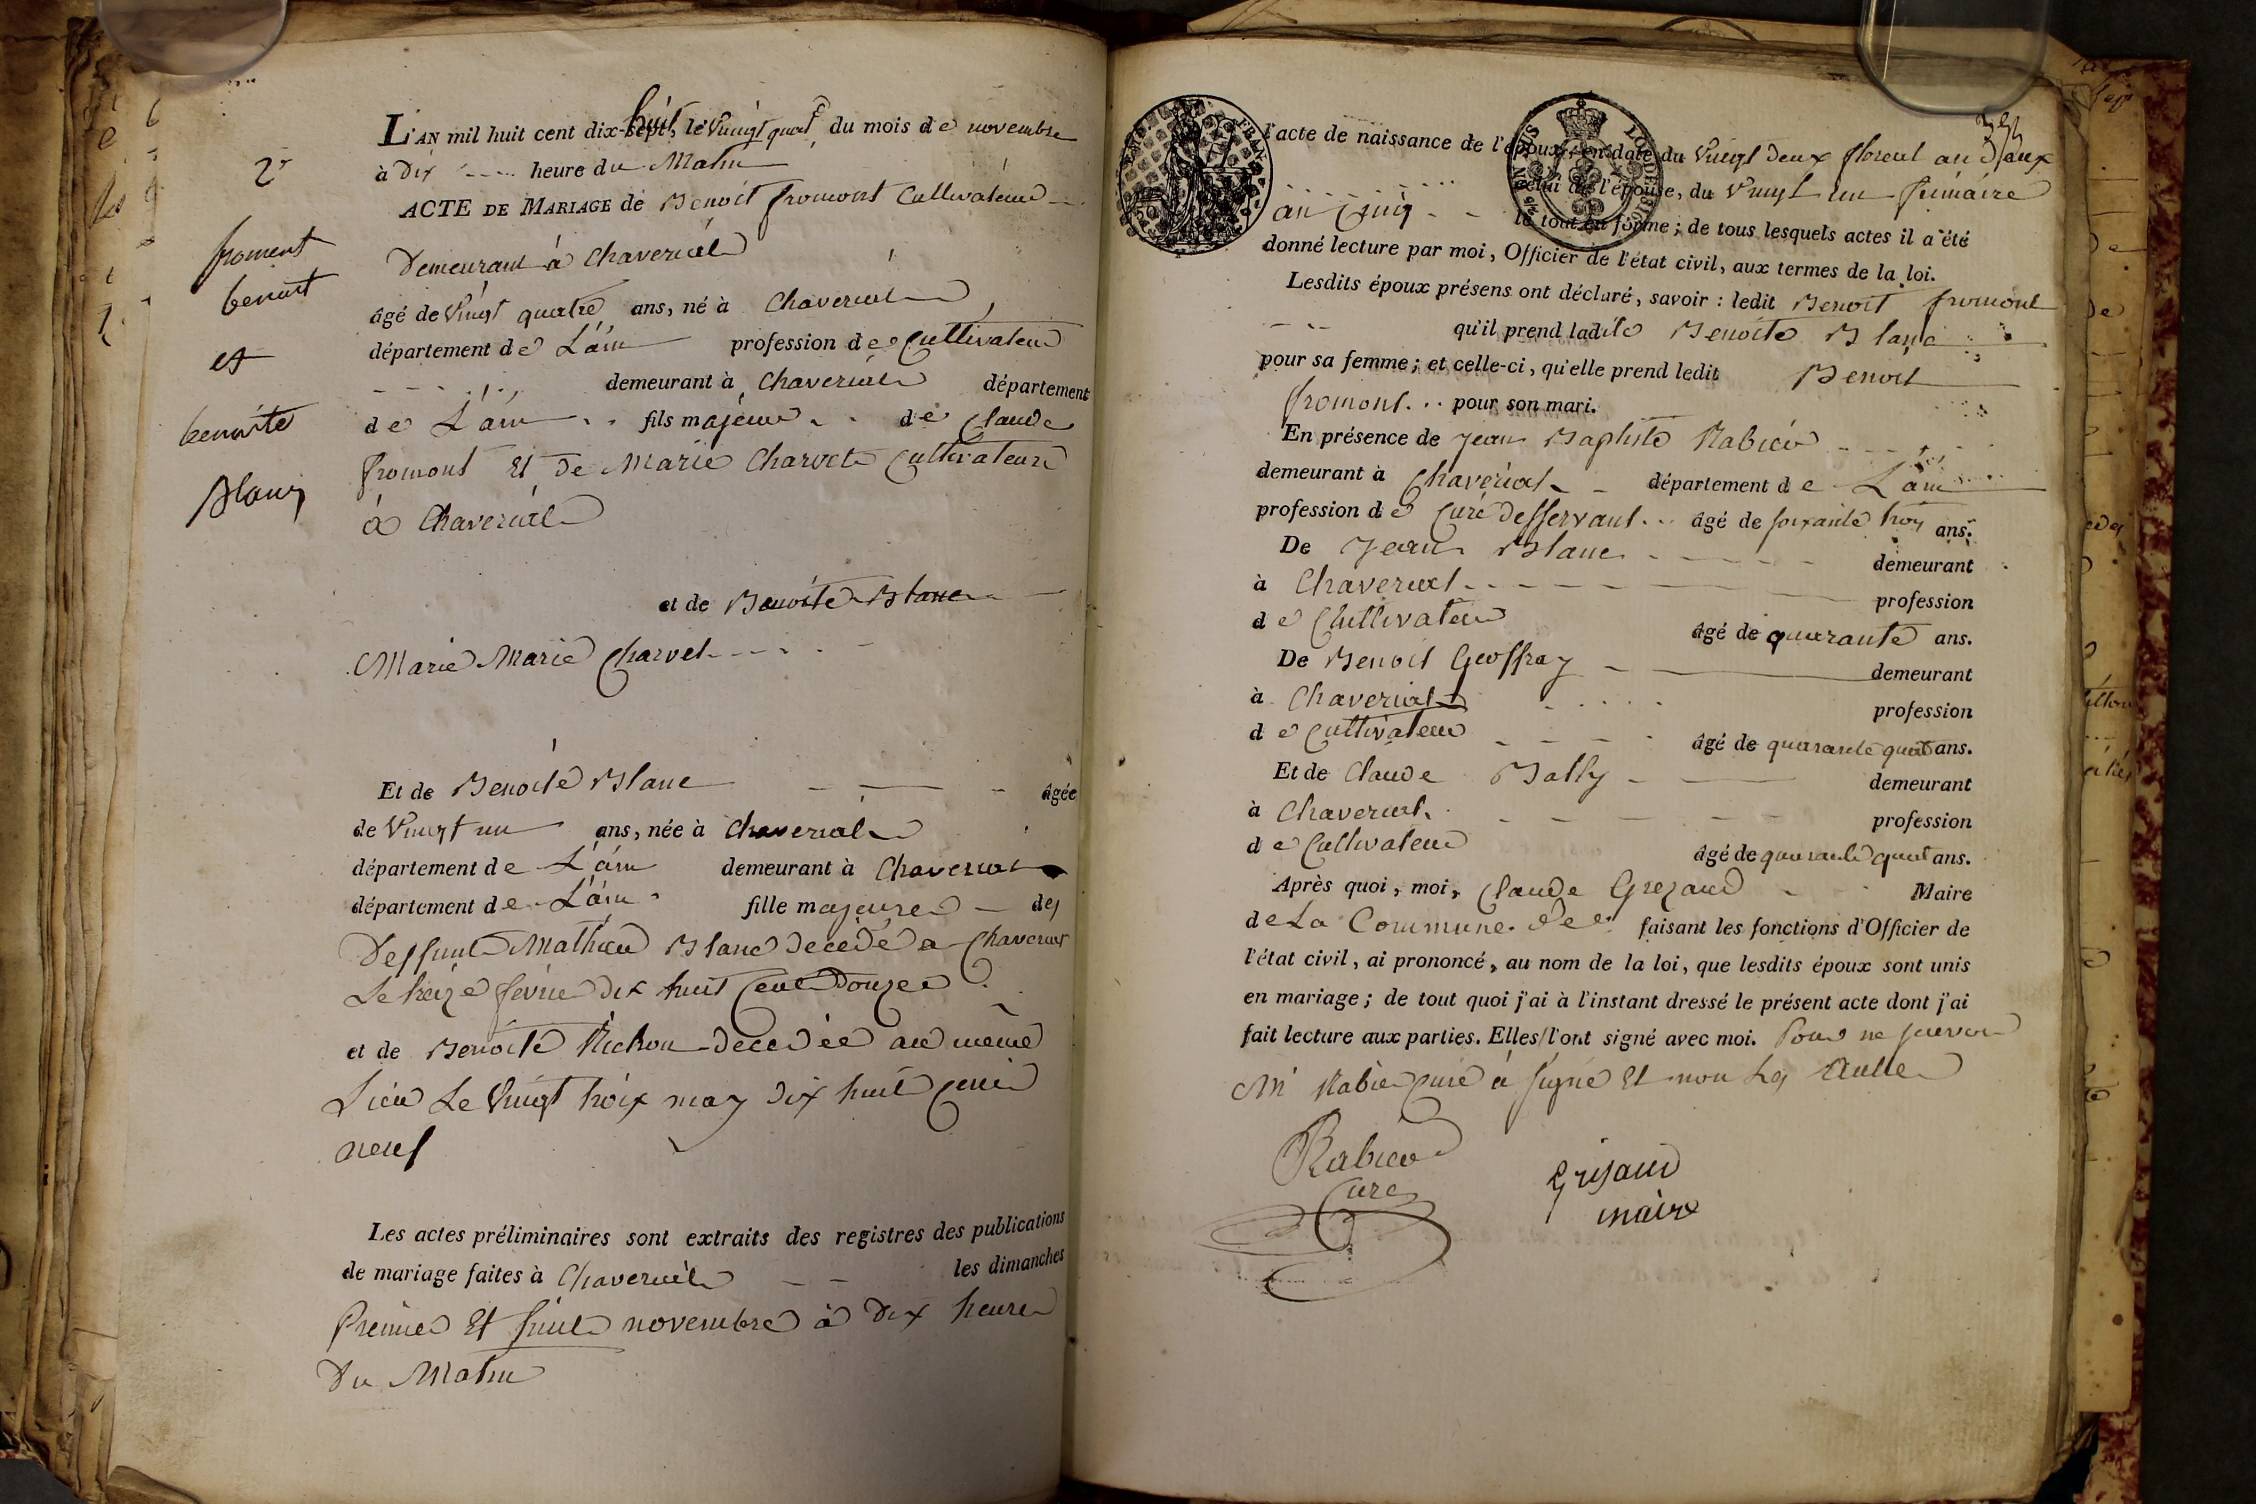 2e
froment
benoit
et
benoite
Blanc
L'AN mil huit cent dix-sept, huit le Vingt quatre du mois de novembre
à Dix heure du Matin
ACTE DE MARIAGE de Benoit fromont Cultivateur
Demeurant à Chaveriat
âgé de Vingt quatre ans, né à Chaveriat
département de L'ain profession de Cultivateur
demeurant à Chaveriat département
de L'ain fils majeur de Claude
fromont Et De Marie Charvet Cultivateur
à Chaveriat
et de Benoite Blanc
Marie Marie Charvet
Et de Benoite Blanc âgée
de Vingt un ans, née à Chaveriat
département de L'ain demeurant à Chaveriat
département de L'ain fille majeure des
Deffunt Mathieu Blanc Décédé a Chaveriat
Le treize fevrie dix huit Cent Douze
et de Benoite Richon decedée au même
Lieu Le Vingt troix may dix huit Cent
neuf
Les actes préliminaires sont extraits des registres des publications
de mariage faites à Chaveriat les dimanches
Premier Et huit novembre à Dix heure
Du Matin
l'acte de naissance de l'époux, en date du Vingt Deux floreal an Deux
celui de l'épouse, du Vingt un frimaire
an Cinq le tout en forme ; de tous lesquels actes il a été
donné lecture par moi, Officier de l'état civil, aux termes de la loi.
Lesdits époux présens ont déclaré, savoir : ledit Benoit fromont
qu'il prend ladite Benoite Blanc
pour sa femme ; et celle-ci, qu'elle prend ledit Benoit
fromont pour son mari.
En présence de Jean Baptiste Rabieu
demeurant à Chaveriat département de L'ain
profession de Curé desservant âgé de soixante troy ans.
De Jean Blanc demeurant
à Chaveriat profession
de Cultivateur âgé de quarante ans.
De Benoit Geoffray demeurant
à Chaveriat profession
de Cultivateur âgé de quarante quat ans.
Et de Claude Bally demeurant
à Chaveriat profession
de Cultivateur âgé de quarante quat ans.
Après quoi, moi, Claude Grezaud Maire
de La Commune de faisant les fonctions d'Officier de
l'état civil, ai prononcé, au nom de la loi, que lesdits époux sont unis
en mariage ; de tout quoi j'ai à l'instant dressé le présent acte dont j'ai
fait lecture aux parties. Elles l'ont signé avec moi. Pour ne savoir
Mr Rabieu Curé à signé Et non Les Autre
Rabieu
Curé
Grisaud
maire